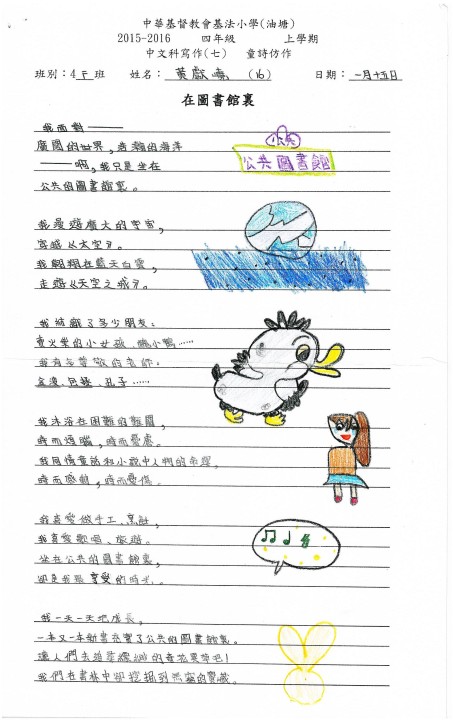 中華基督教會基法小學(油塘)
2015-2016 四年級 上學期
中文科寫作(七) 童詩仿作
班別:4F班 姓名:黃獻 (16) 日期:一月十五日
在圖書館裏
我面對——
廣闊的世界,浩瀚的海洋
——啊,我只是坐在
公共的圖書館裏。
公共
公共圖書館
我漫遊廣大的宇宙,
穿越《太空》。
我翱翔在藍天白雲,
走進《天空之城》。
我結識了多少朋友:
賣火柴的小女孩、醜小鴨……
我有多尊敬的老師:
金波、包拯、孔子……
我沐浴在困難的難關,
時而煩腦,時而憂慮。
我同情童話和小說中人們的命運,
時而感動,時而憂傷。
我喜愛做手工、烹飪,
我喜愛歌唱、旅遊。
坐在公共的圖書館裏,
卻是我最享受的時光。
我一天一天地成長,
一本又一本新書充實了公共的圖書館裏。
讓人們去追尋繽紛的奇花異草吧!
我們在書林中卻挖掘到無窮的寶藏。